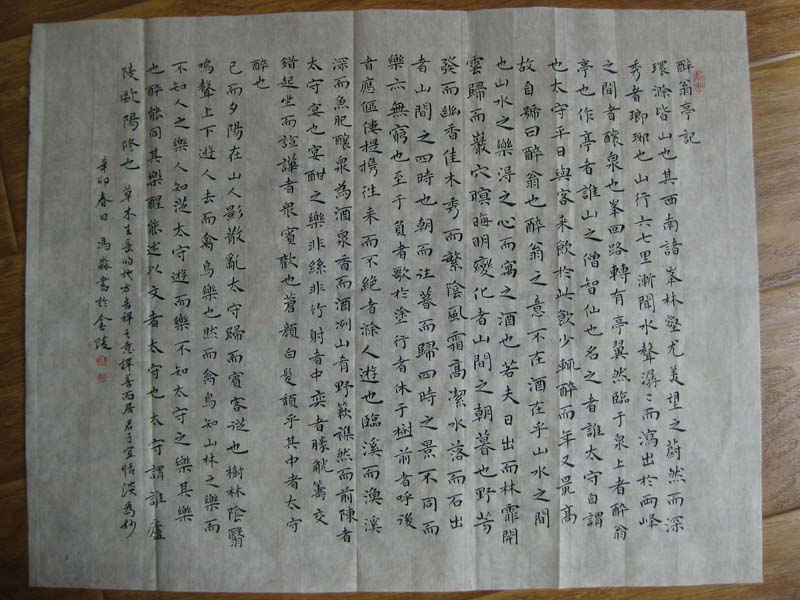 醉翁亭記
環滁皆山也其西南諸峯林壑尤美望之蔚然而深
秀者瑯琊也山行六七里漸聞水聲潺〻而瀉出於兩峰
之間者釀泉也峯回路轉有亭翼然臨于泉上者醉翁
亭也作亭者誰山之僧智仙也名之者誰太守自謂
也太守平日與客来飲於此飲少輒醉而年又最高
故自號曰醉翁也醉翁之意不在酒在乎山水之間
也山水之樂得之心而寓之酒也若夫日出而林霏開
雲歸而巖穴暝晦明變化者山間之朝暮也野芳
發而幽香佳木秀而繁陰風霜高潔水落而石出
者山間之四時也朝而往暮而歸四時之景不同而
樂亦無窮也至于負者歌於塗行者休于樹前者呼後
者應傴僂提携往来而不絕者滁人遊也臨溪而漁溪
深而魚肥釀泉為酒泉香而酒冽山肴野蔌襍然而前陳者
太守宴也宴酣之樂非絲非竹射者中奕者勝觥籌交
錯起坐而諠譁者衆賓歡也蒼顏白髮頹乎其中者太守
醉也
已而夕陽在山人影散亂太守歸而賓客從也樹林陰翳
鳴聲上下遊人去而禽鳥樂也然而禽鳥知山林之樂而
不知人之樂人知從太守遊而樂不知太守之樂其樂
也醉能同其樂醒能述以文者太守也太守謂誰廬
陵歐陽修也 草木生長的地方吉祥之意擇善而居君子宜恬淡為妙
辛卯春日馮淼書於金陵